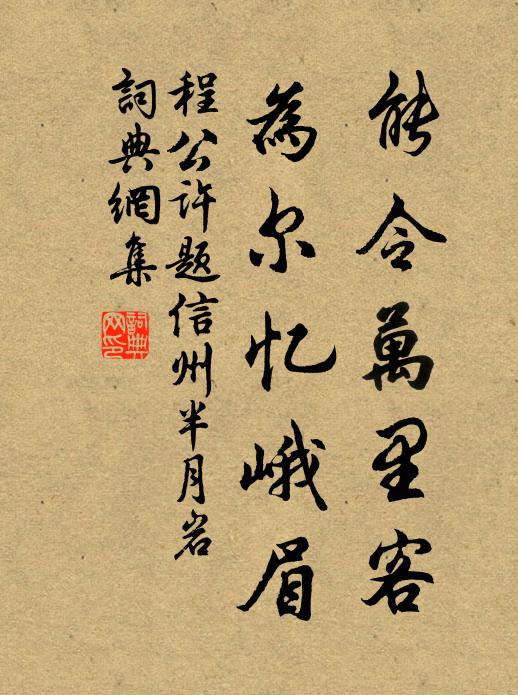 能令萬里客
為尔忆峨眉
程公许題信州半月岩
詞典網集
詞典网印